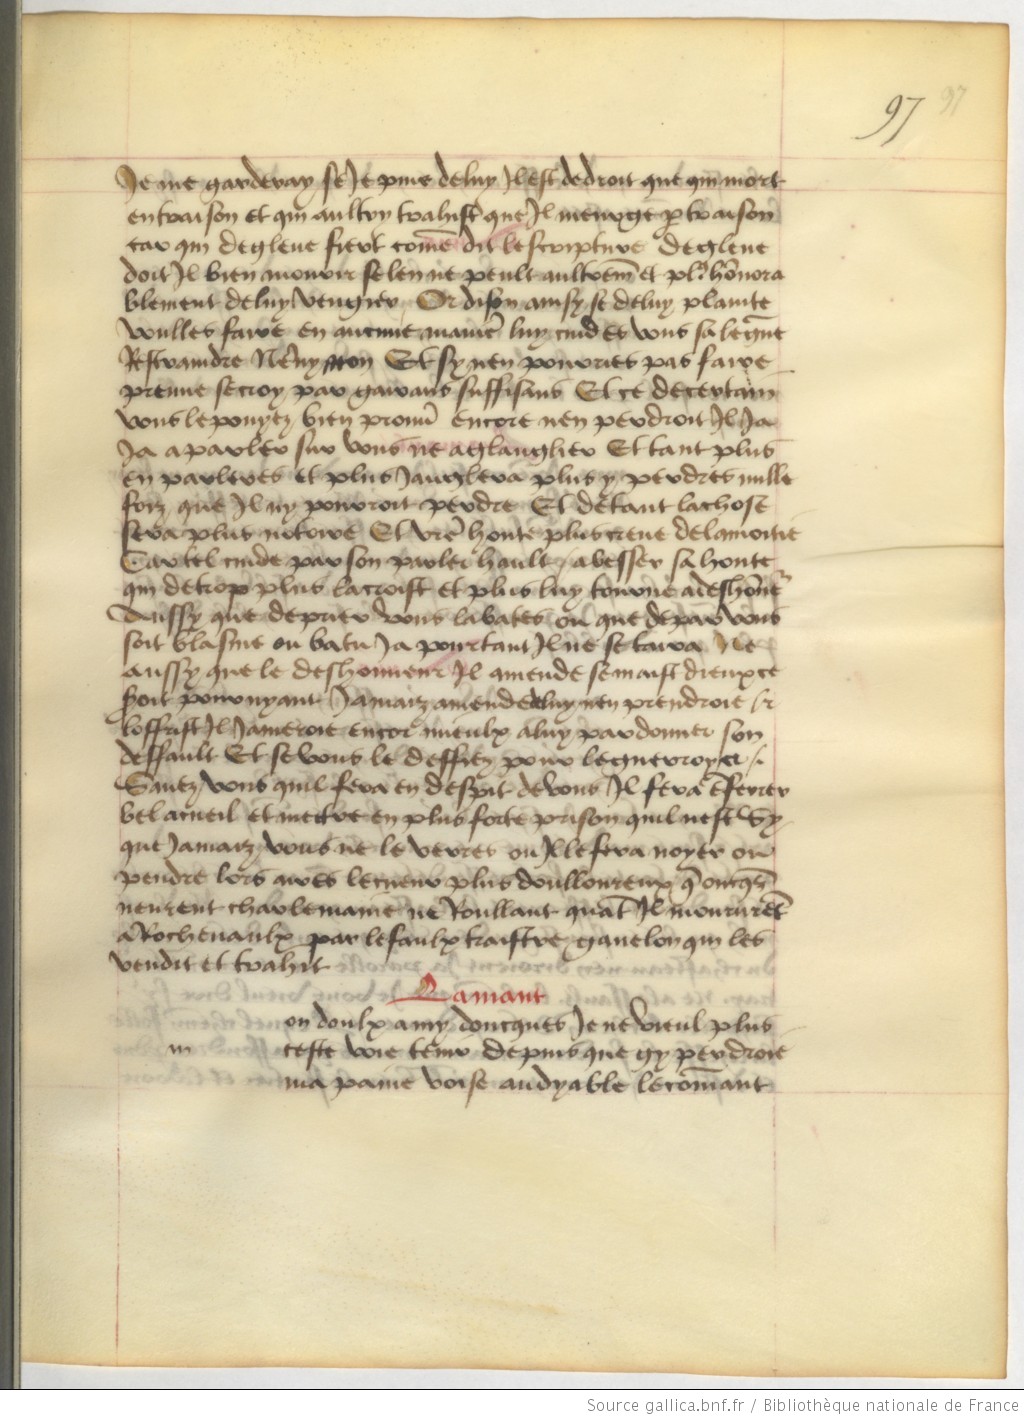 97 97
Je me garderay se Je puis de luy Il est de droit que qui mort
en traison et qui aultry trahist que Il meurge p traison
car qui de gleue fiert come dit lescripture de gleue
doit Il bien mourir se len ne peult aultremt et pl9 honora
blement de luy vengier Or dison ainsy se de luy plainte
voulles faire en aucune maniere luy cuides vous sa legue
Restraindre Neny non Et sy nen pourries pas faire
preuue se croy par garans suffisans Et ce de certain
vous le pouyez bien prouuer encore nen perdroit Il Ja
Ja a parler sur vous ne a glauglier Et tant plus
en parleres et plus Jauglera plus y perdres mille
foiz que Il ny pourroit perdre Et de tant la chose
sera plus notoire Et vre honte plus creue de la moitie
Car tel cuide par son parler hault abesser sa honte
qui de trop plus lacroist et plus luy tourne a deshoner
Aussy que de prier vous labates ou que de par vous
soit blasme ou batu Ja pourtant Il ne se taira Ne
aussy que le deshonneur Il amende se maist dieux ce
soit pouruoyant Jamaiz amende de luy nen prendroie se
loffrist Il Jameroie encor mieulx a luy pardonner son
deffault Et se vous le deffiez pour le guerroyer
Sauez vous quil fera en despit de vous Il fera enferrer
bel acueil et mectre en plus forte prison quil nest Sy
que Jamaiz vous ne le verres ou Il le fera noyer ou
pendre lors aures le cueur plus doulloureux q oncqs
neurent charlemaine ne Roullant quat Il moururet
a Rocheuaulx par le faulx traistre ganelon qui les
vendit et trahit
Lamant
on doulx amy doncques Je ne vieul plus
m ceste voie tenir depuis que gy perdroie
ma paine voise au dyable le comant
Source gallica.bnf.fr / Bibliothèque nationale de France